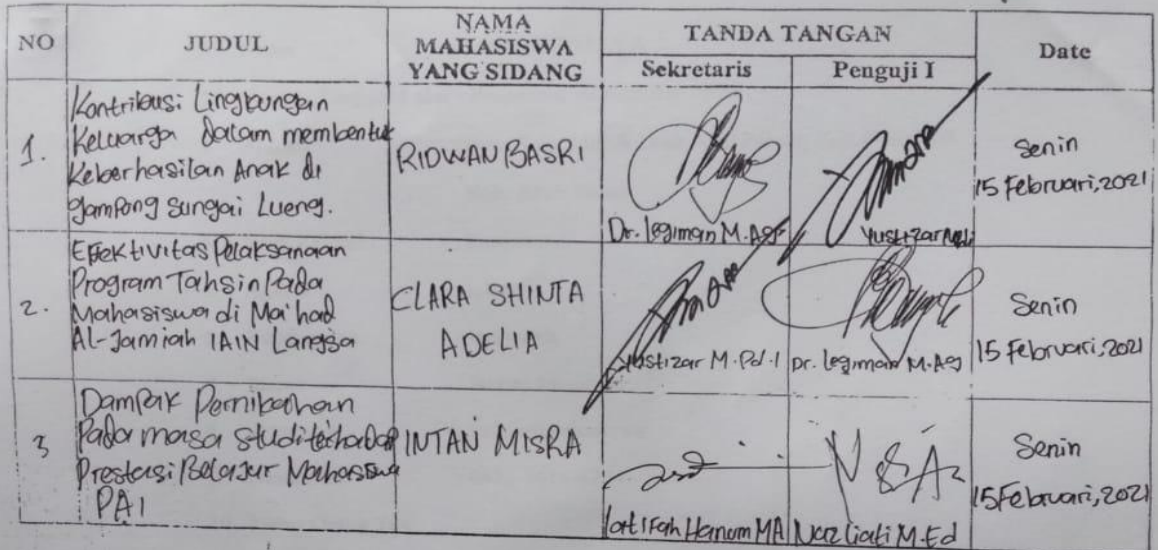 NO JUDUL NAMA MAHASISWA YANG SIDANG TANDA TANGAN Date
Sekretaris Penguji I
1.
Kontribusi Lingkungan
Keluarga dalam membentuk
Keberhasilan Anak di
gampong Sungai Lueng.
RIDWAN BASRI
Dr. Legiman M.Ag
Yustizar
Senin
15 Februari, 2021
2.
Efektivitas Pelaksanaan
Program Tahsin Pada
Mahasiswa di Ma'had
Al-Jamiah IAIN Langsa
CLARA SHINTA
ADELIA
Yustizar M.Pd.I
Dr. Legiman M.Ag
Senin
15 Februari, 2021
3
Dampak Pernikahan
Pada masa studi terhadap
Prestasi Belajar Mahasiswa
PAI
INTAN MISRA
Latifah Hanum MA
Nazliati M.Ed
Senin
15 Februari, 2021